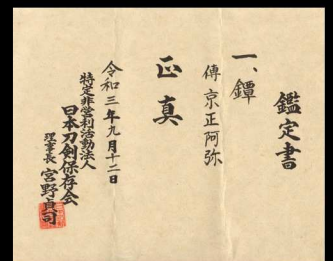 鑑定書
一、鐔
傳京正阿弥
正真
令和三年九月十二日
特定非営利活動法人
日本刀剣保存会
理事長 宮野貞司